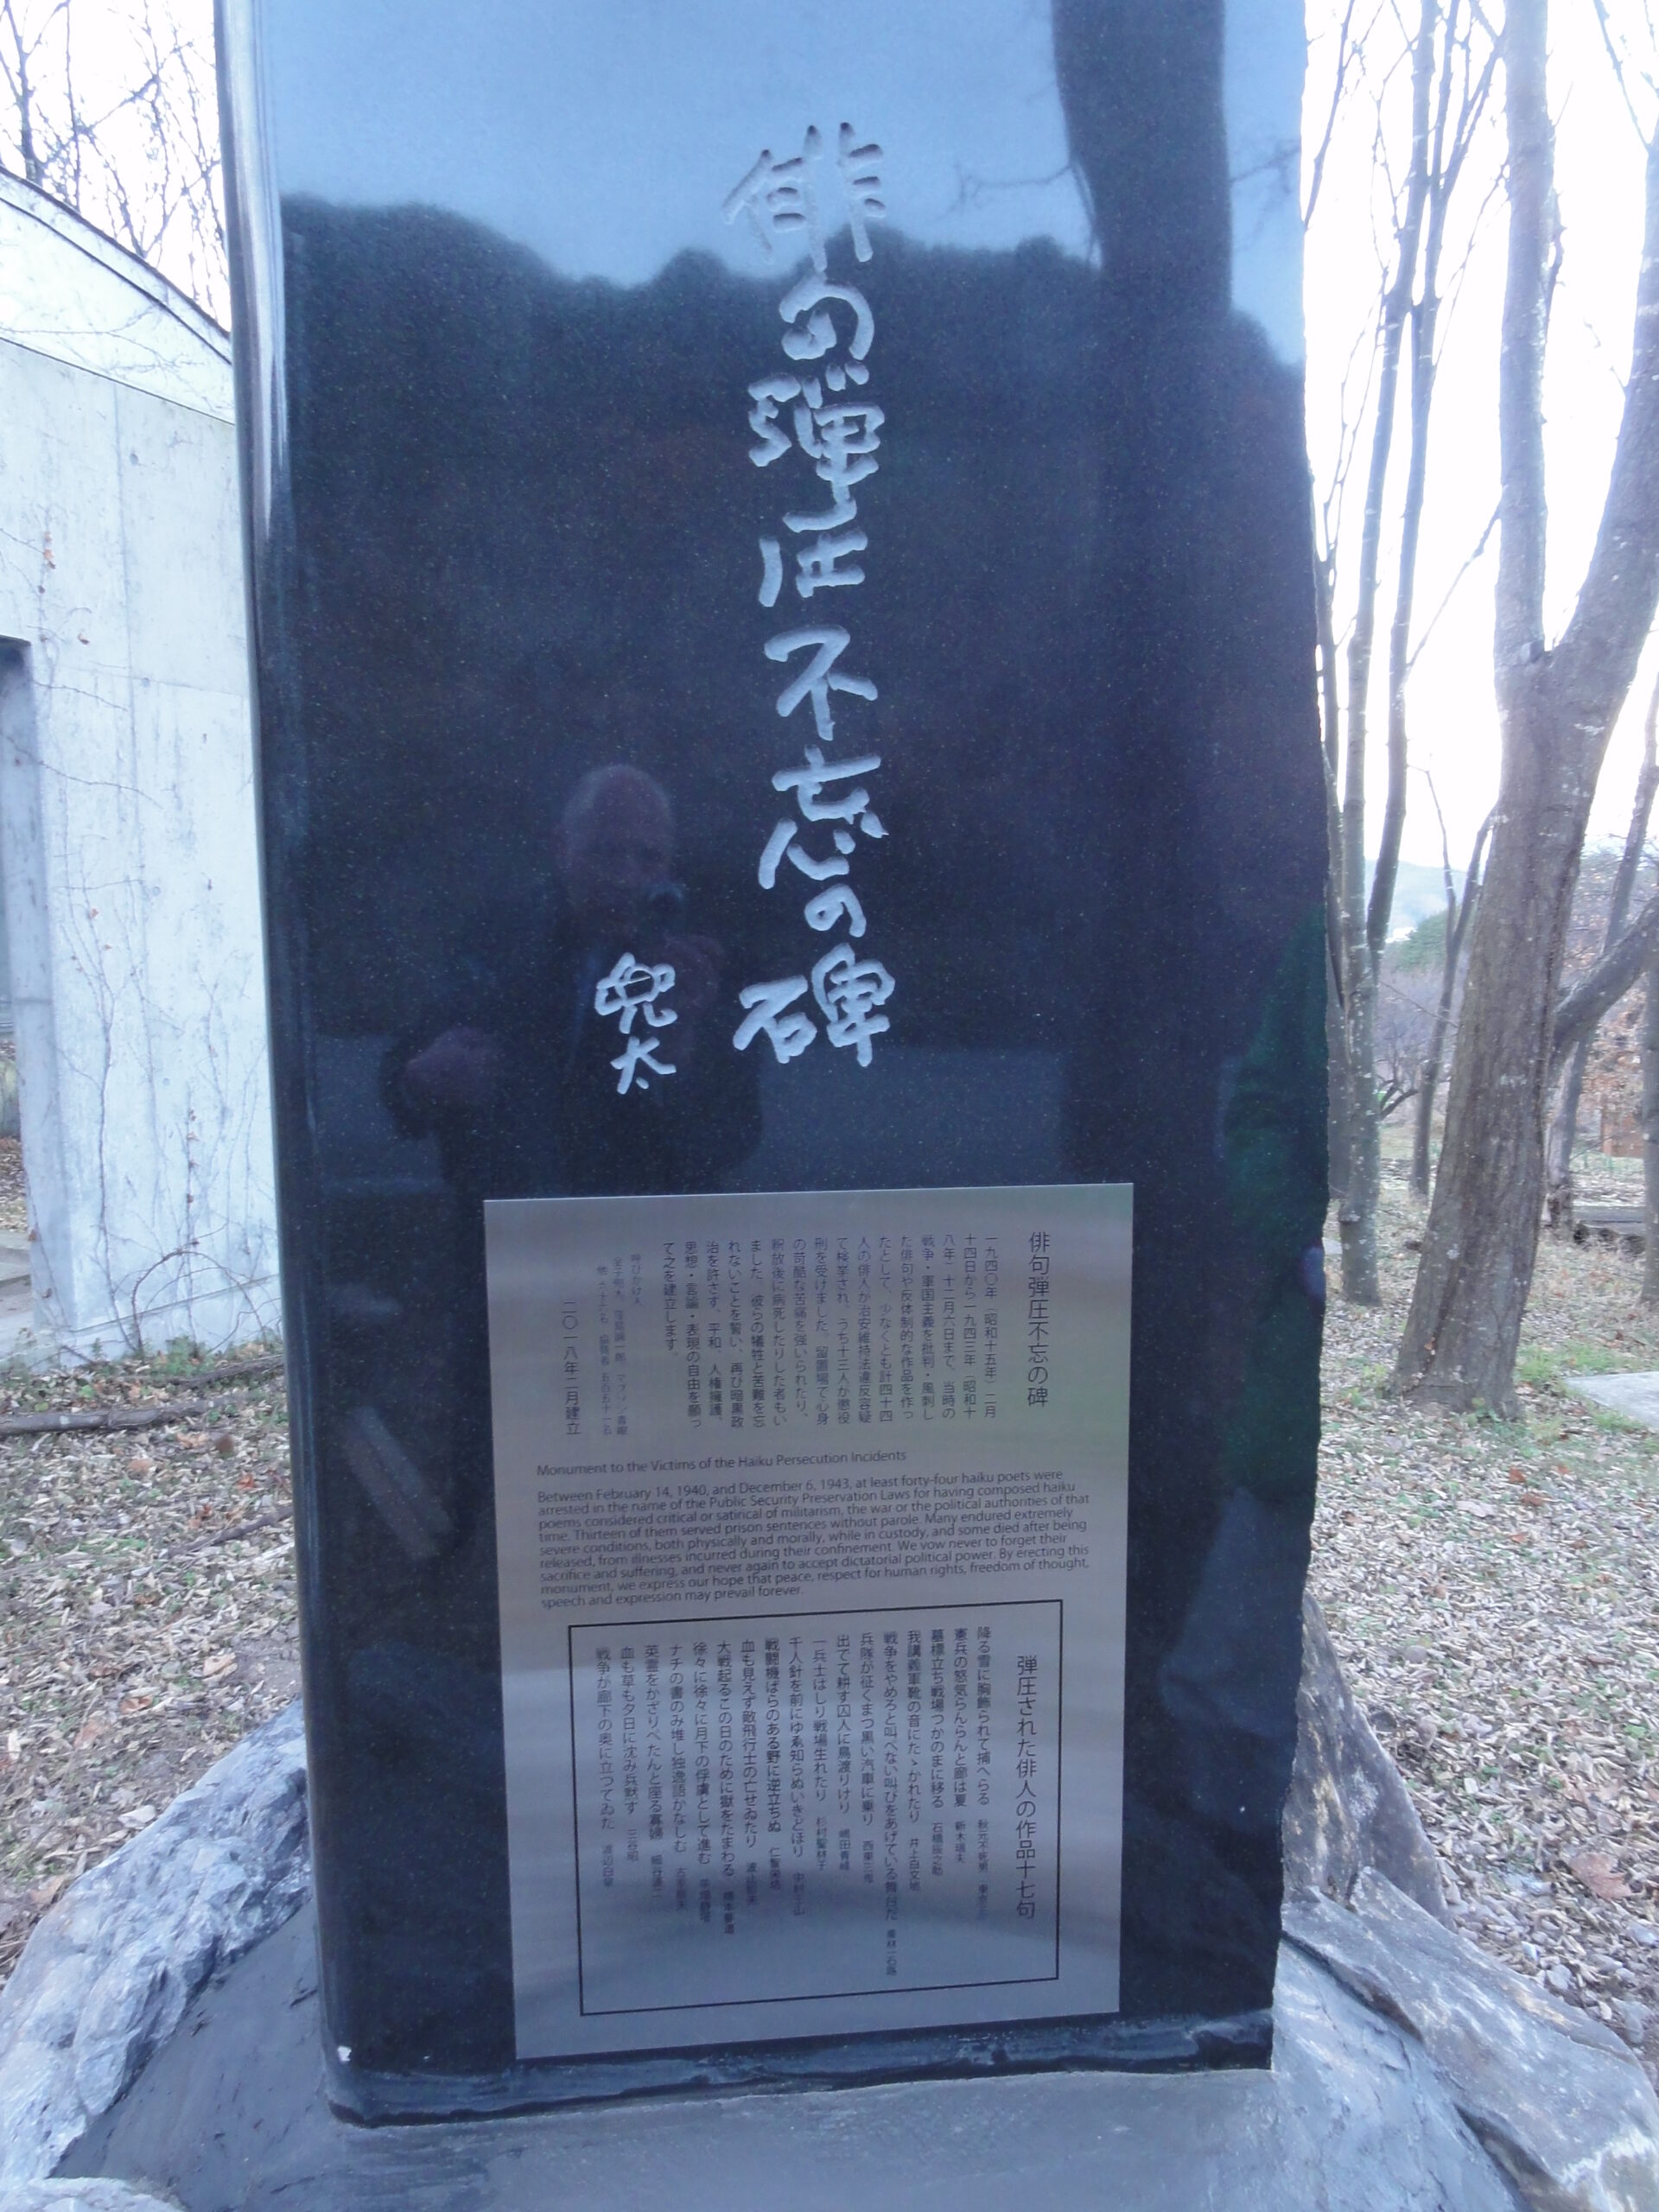 俳句弾圧不忘の碑
兜太
俳句弾圧不忘の碑
一九四〇年（昭和十五年）二月
十四日から一九四三年（昭和十
八年）十二月六日まで、当時の
戦争・軍国主義を批判・風刺し
た俳句や反体制的な作品を作っ
たとして、少なくとも計四十四
人の俳人が治安維持法違反容疑
で検挙され、うち十三人が懲役
刑を受けました。留置場で心身
の苛酷な苦痛を強いられたり、
釈放後に病死したりした者もい
ました。彼らの犠牲と苦難を忘
れないことを誓い、再び暗黒政
治を許さず、平和、人権擁護、
思想・言論・表現の自由を願っ
て之を建立します。
呼びかけ人
金子兜太 マブソン青眼
二〇一八年二月建立
Monument to the Victims of the Haiku Persecution Incidents
Between February 14, 1940, and December 6, 1943, at least forty-four haiku poets were
arrested in the name of the Public Security Preservation Laws for having composed haiku
poems considered critical or satirical of militarism, the war or the political authorities of that
time. Thirteen of them served prison sentences without parole. Many endured extremely
severe conditions, both physically and morally, while in custody, and some died after being
released, from illnesses incurred during their confinement. We vow never to forget their
sacrifice and suffering, and never again to accept dictatorial political power. By erecting this
monument, we express our hope that peace, respect for human rights, freedom of thought,
speech and expression may prevail forever.
弾圧された俳人の作品十七句
降る雪に胸飾られて捕へらる 秋元不死男
憲兵の怒気らんらんと廊は夏 新木瑞夫
墓標立ち戦場つかのまに移る 石橋辰之助
我講義軍靴の音にたゝかれたり 井上白文地
戦争をやめろと叫べない叫びをあげている舞台だ 栗林一石路
兵隊が征くまつ黒い汽車に乗り 西東三鬼
出でて耕す囚人に鳥渡りけり 嶋田青峰
一兵士はしり戦場生れたり 杉村聖林子
千人針を前にゆゑ知らぬいきどほり 中村三山
戦闘機ばらのある野に逆立ちぬ 仁智栄坊
血も見えず敵飛行士の亡せゐたり 波止影夫
大戦起るこの日のために獄をたまわる 橋本夢道
徐々に徐々に月下の俘虜として進む 平畑静塔
ナチの書のみ堆し独逸語かなしむ 古家榧夫
英霊をかざりぺたんと座る寡婦 細谷源二
血も草も夕日に沈み兵黙す 三谷昭
戦争が廊下の奥に立つてゐた 渡辺白泉